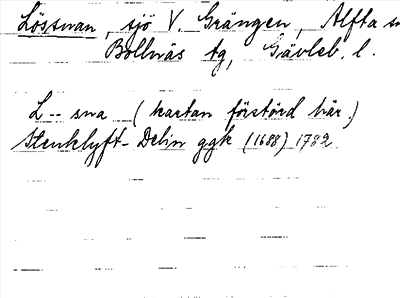 Lössnan, sjö V. Grängen, Alfta s
Bollnäs tg, Gävleb. l.
L-- sna (kartan förstörd här.)
Stenklyft-Delin ggk (1688) 1782